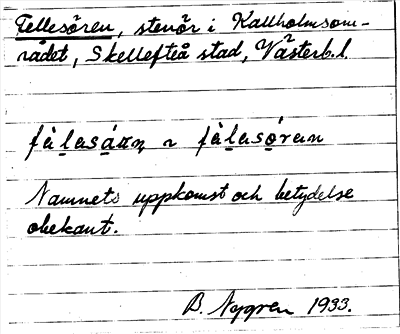 Fellesören, stenör i Kallholmsom-
rådet, Skellefteå stad, Västerb. l.
fàlasáran ~ fàlasóran
Namnets uppkomst och betydelse
obekant.
B. Nygren 1933.